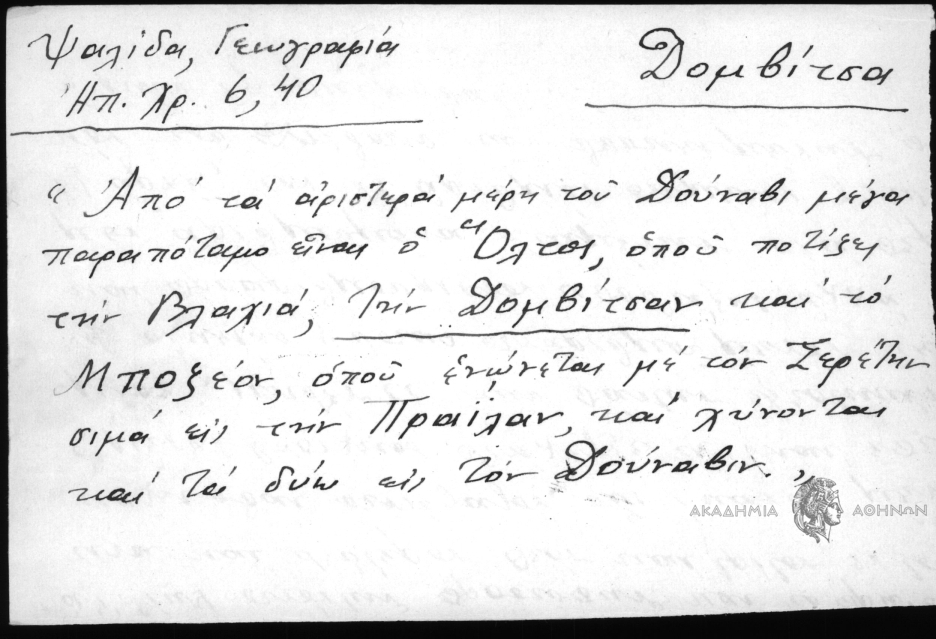 Ψαλίδα, Γεωγραφία
Ἠπ. Χρ. 6, 40
Δομβίτσα
"Ἀπό τά ἀριστερά μέρη τοῦ Δούναβι μέγα
παραπόταμο εἶναι ὁ Ὄλτος, ὁποῦ ποτίζει
τήν Βλαχιά, τήν Δομβίτσαν καί τό
Μποζέον, ὁποῦ ἑνώνεται μέ τόν Σερέτην
σιμά εἰς τήν Πραΐλαν, καί χύνονται
καί τά δύω εἰς τόν Δούναβιν."
ΑΚΑΔΗΜΙΑ ΑΘΗΝΩΝ